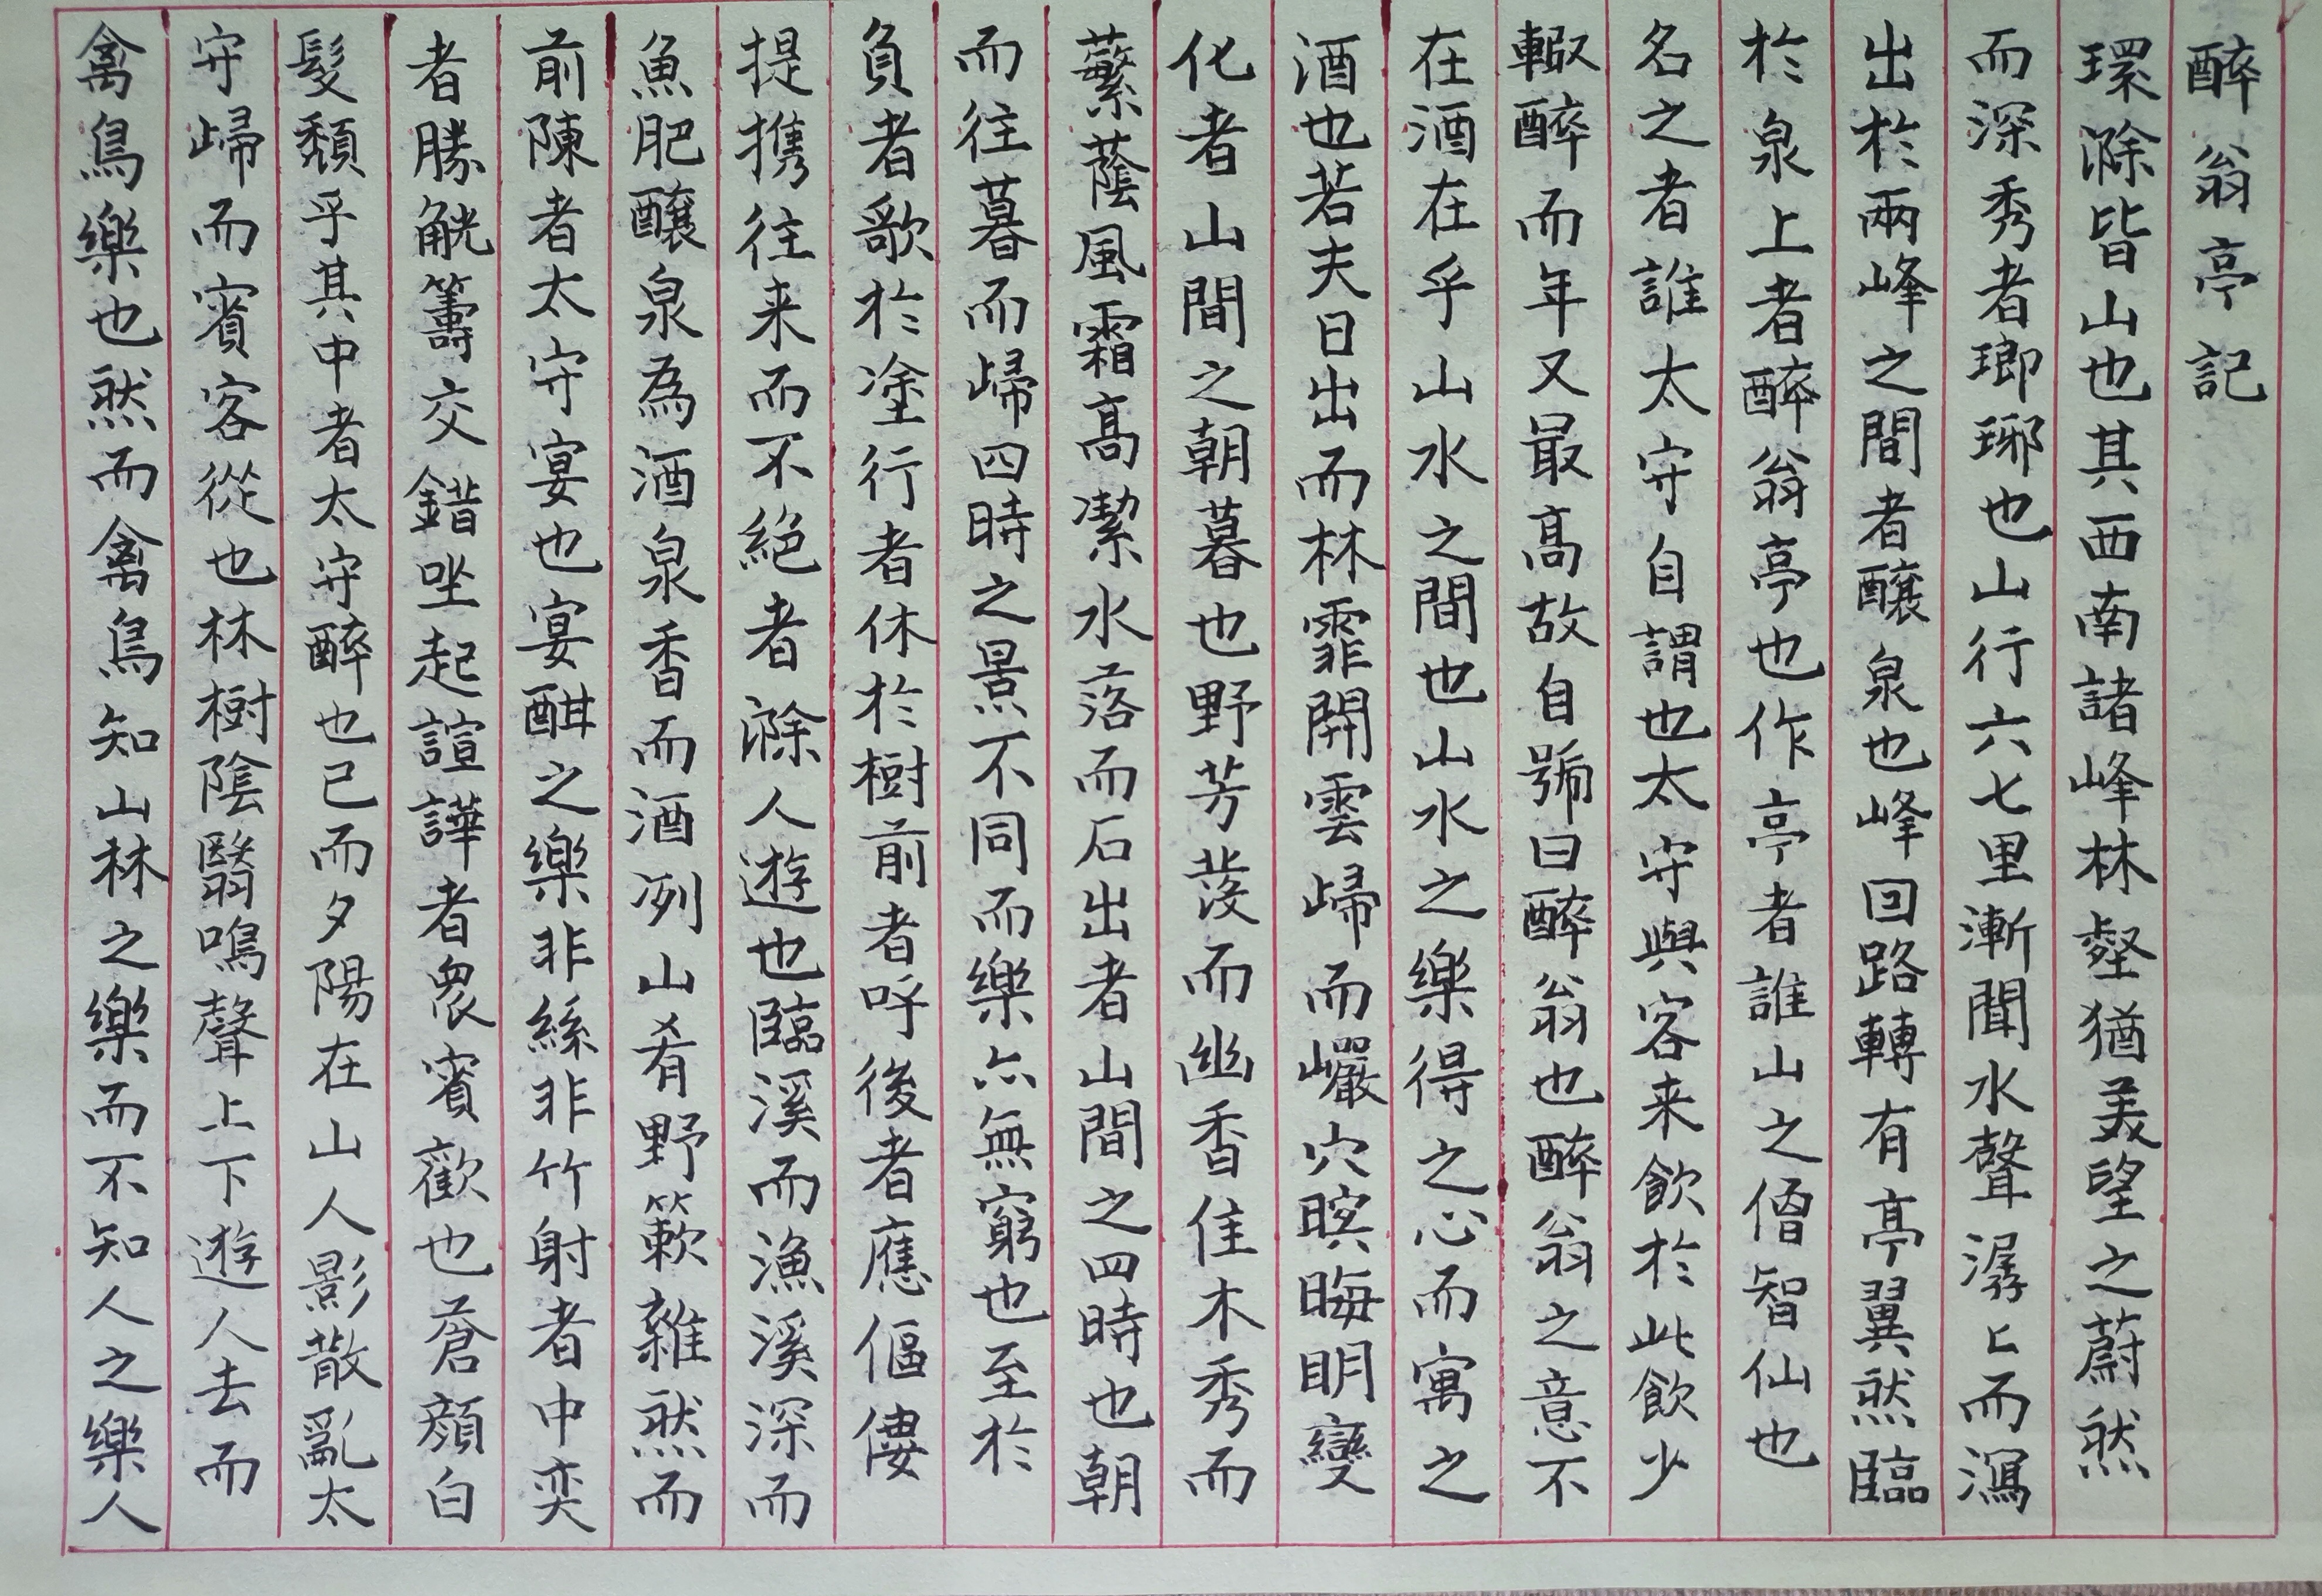 醉翁亭記
環滁皆山也其西南諸峰林壑猶美望之蔚然
而深秀者瑯琊也山行六七里漸聞水聲潺〻而瀉
出於兩峰之間者釀泉也峰回路轉有亭翼然臨
於泉上者醉翁亭也作亭者誰山之僧智仙也
名之者誰太守自謂也太守與客来飲於此飲少
輙醉而年又最高故自號曰醉翁也醉翁之意不
在酒在乎山水之間也山水之樂得之心而寓之
酒也若夫日出而林霏開雲歸而巖穴暝晦明變
化者山間之朝暮也野芳發而幽香佳木秀而
蘩蔭風霜高潔水落而石出者山間之四時也朝
而往暮而歸四時之景不同而樂亦無窮也至於
負者歌於塗行者休於樹前者呼後者應傴僂
提携往来而不絕者滁人遊也臨溪而漁溪深而
魚肥釀泉為酒泉香而酒冽山肴野蔌雜然而
前陳者太守宴也宴酣之樂非絲非竹射者中奕
者勝觥籌交錯坐起諠譁者衆賓歡也蒼顔白
髮頽乎其中者太守醉也已而夕陽在山人影散亂太
守歸而賓客從也林樹陰翳鳴聲上下遊人去而
禽鳥樂也然而禽鳥知山林之樂而不知人之樂人